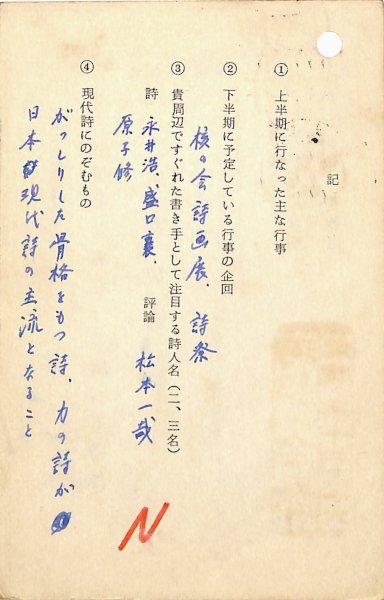 記
① 上半期に行なった主な行事
② 下半期に予定している行事の企回
核の会詩画展、詩祭
③ 貴周辺ですぐれた書き手として注目する詩人名(二、三名)
詩 永井浩、盛口襄、 評論 松本一哉
原子修
④ 現代詩にのぞむもの
がっしりした骨格をもつ詩、力の詩が
日本現代詩の主流となること
N